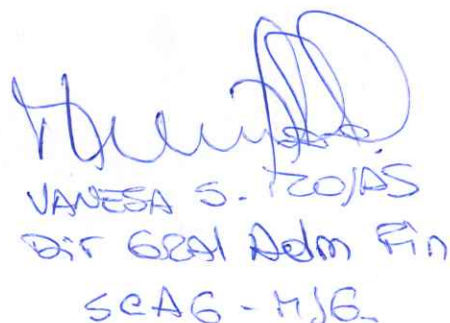 VANESA S. ROJAS
Dir GRAl Adm Fin
SCAG - MJG.